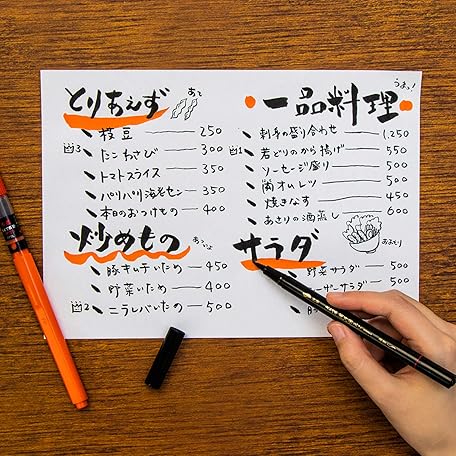 とりあえず
あて
枝豆 250
3 たこわさび 300
トマトスライス 350
パリパリ海老セン 350
本日のおつけもの 400
炒めもの
豚キムチいため 450
野菜いため 400
2 ニラレバいため 500
うまっ!
一品料理
刺身の盛り合わせ 1,250
1 若どりのから揚げ 550
ソーセージ盛り 500
オムレツ 500
焼きなす 450
あさりの酒蒸し 600
サラダ
おおもり
野菜サラダ 500
ーザーサラダ 500
500